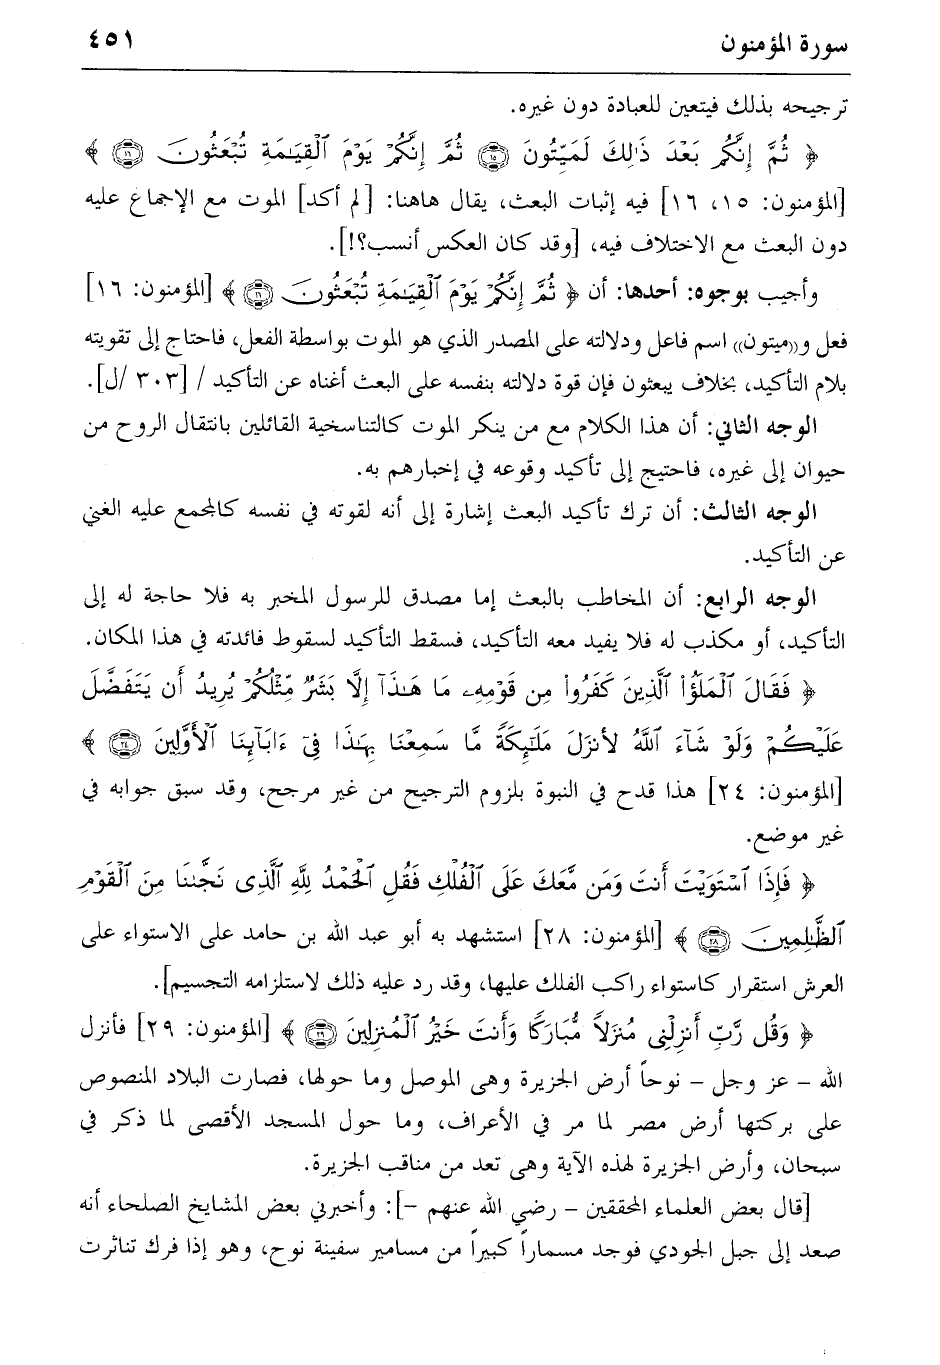 سورة المؤمنون ٤٥١
ترجيحه بذلك فيتعين للعبادة دون غيره.
﴿ ثُمَّ إِنَّكُمْ بَعْدَ ذَٰلِكَ لَمَيِّتُونَ ۝١٥ ثُمَّ إِنَّكُمْ يَوْمَ ٱلْقِيَـٰمَةِ تُبْعَثُونَ ۝١٦ ﴾
[المؤمنون: ١٥، ١٦] فيه إثبات البعث، يقال هاهنا: [لم أكد] الموت مع الإجماع عليه
دون البعث مع الاختلاف فيه، [وقد كان العكس أنسب؟!].
وأجيب بوجوه: أحدها: أن ﴿ ثُمَّ إِنَّكُمْ يَوْمَ ٱلْقِيَـٰمَةِ تُبْعَثُونَ ۝١٦ ﴾ [المؤمنون: ١٦]
فعل و((ميتون)) اسم فاعل ودلالته على المصدر الذي هو الموت بواسطة الفعل، فاحتاج إلى تقويته
بلام التأكيد، بخلاف يبعثون فإن قوة دلالته بنفسه على البعث أغناه عن التأكيد / [٣٠٣ /ل].
الوجه الثاني: أن هذا الكلام مع من ينكر الموت كالتناسخية القائلين بانتقال الروح من
حيوان إلى غيره، فاحتيج إلى تأكيد وقوعه في إخبارهم به.
الوجه الثالث: أن ترك تأكيد البعث إشارة إلى أنه لقوته في نفسه كالمجمع عليه الغني
عن التأكيد.
الوجه الرابع: أن المخاطب بالبعث إما مصدق للرسول المخبر به فلا حاجة له إلى
التأكيد، أو مكذب له فلا يفيد معه التأكيد، فسقط التأكيد لسقوط فائدته في هذا المكان.
﴿ فَقَالَ ٱلْمَلَؤُا۟ ٱلَّذِينَ كَفَرُوا۟ مِن قَوْمِهِۦ مَا هَـٰذَآ إِلَّا بَشَرٌ مِّثْلُكُمْ يُرِيدُ أَن يَتَفَضَّلَ
عَلَيْكُمْ وَلَوْ شَآءَ ٱللَّهُ لَأَنزَلَ مَلَـٰٓئِكَةً مَّا سَمِعْنَا بِهَـٰذَا فِىٓ ءَابَآئِنَا ٱلْأَوَّلِينَ ۝٢٤ ﴾
[المؤمنون: ٢٤] هذا قدح في النبوة بلزوم الترجيح من غير مرجح، وقد سبق جوابه في
غير موضع.
﴿ فَإِذَا ٱسْتَوَيْتَ أَنتَ وَمَن مَّعَكَ عَلَى ٱلْفُلْكِ فَقُلِ ٱلْحَمْدُ لِلَّهِ ٱلَّذِى نَجَّىٰنَا مِنَ ٱلْقَوْمِ
ٱلظَّـٰلِمِينَ ۝٢٨ ﴾ [المؤمنون: ٢٨] استشهد به أبو عبد الله بن حامد على الاستواء على
العرش استقرار كاستواء راكب الفلك عليها، وقد رد عليه ذلك لاستلزامه التجسيم].
﴿ وَقُل رَّبِّ أَنزِلْنِى مُنزَلًا مُّبَارَكًا وَأَنتَ خَيْرُ ٱلْمُنزِلِينَ ۝٢٩ ﴾ [المؤمنون: ٢٩] فأنزل
الله - عز وجل - نوحاً أرض الجزيرة وهى الموصل وما حولها، فصارت البلاد المنصوص
على بركتها أرض مصر لما مر في الأعراف، وما حول المسجد الأقصى لما ذكر في
سبحان، وأرض الجزيرة لهذه الآية وهى تعد من مناقب الجزيرة.
[قال بعض العلماء المحققين - رضي الله عنهم -]: وأخبرني بعض المشايخ الصلحاء أنه
صعد إلى جبل الجودي فوجد مسماراً كبيراً من مسامير سفينة نوح، وهو إذا فرك تناثرت